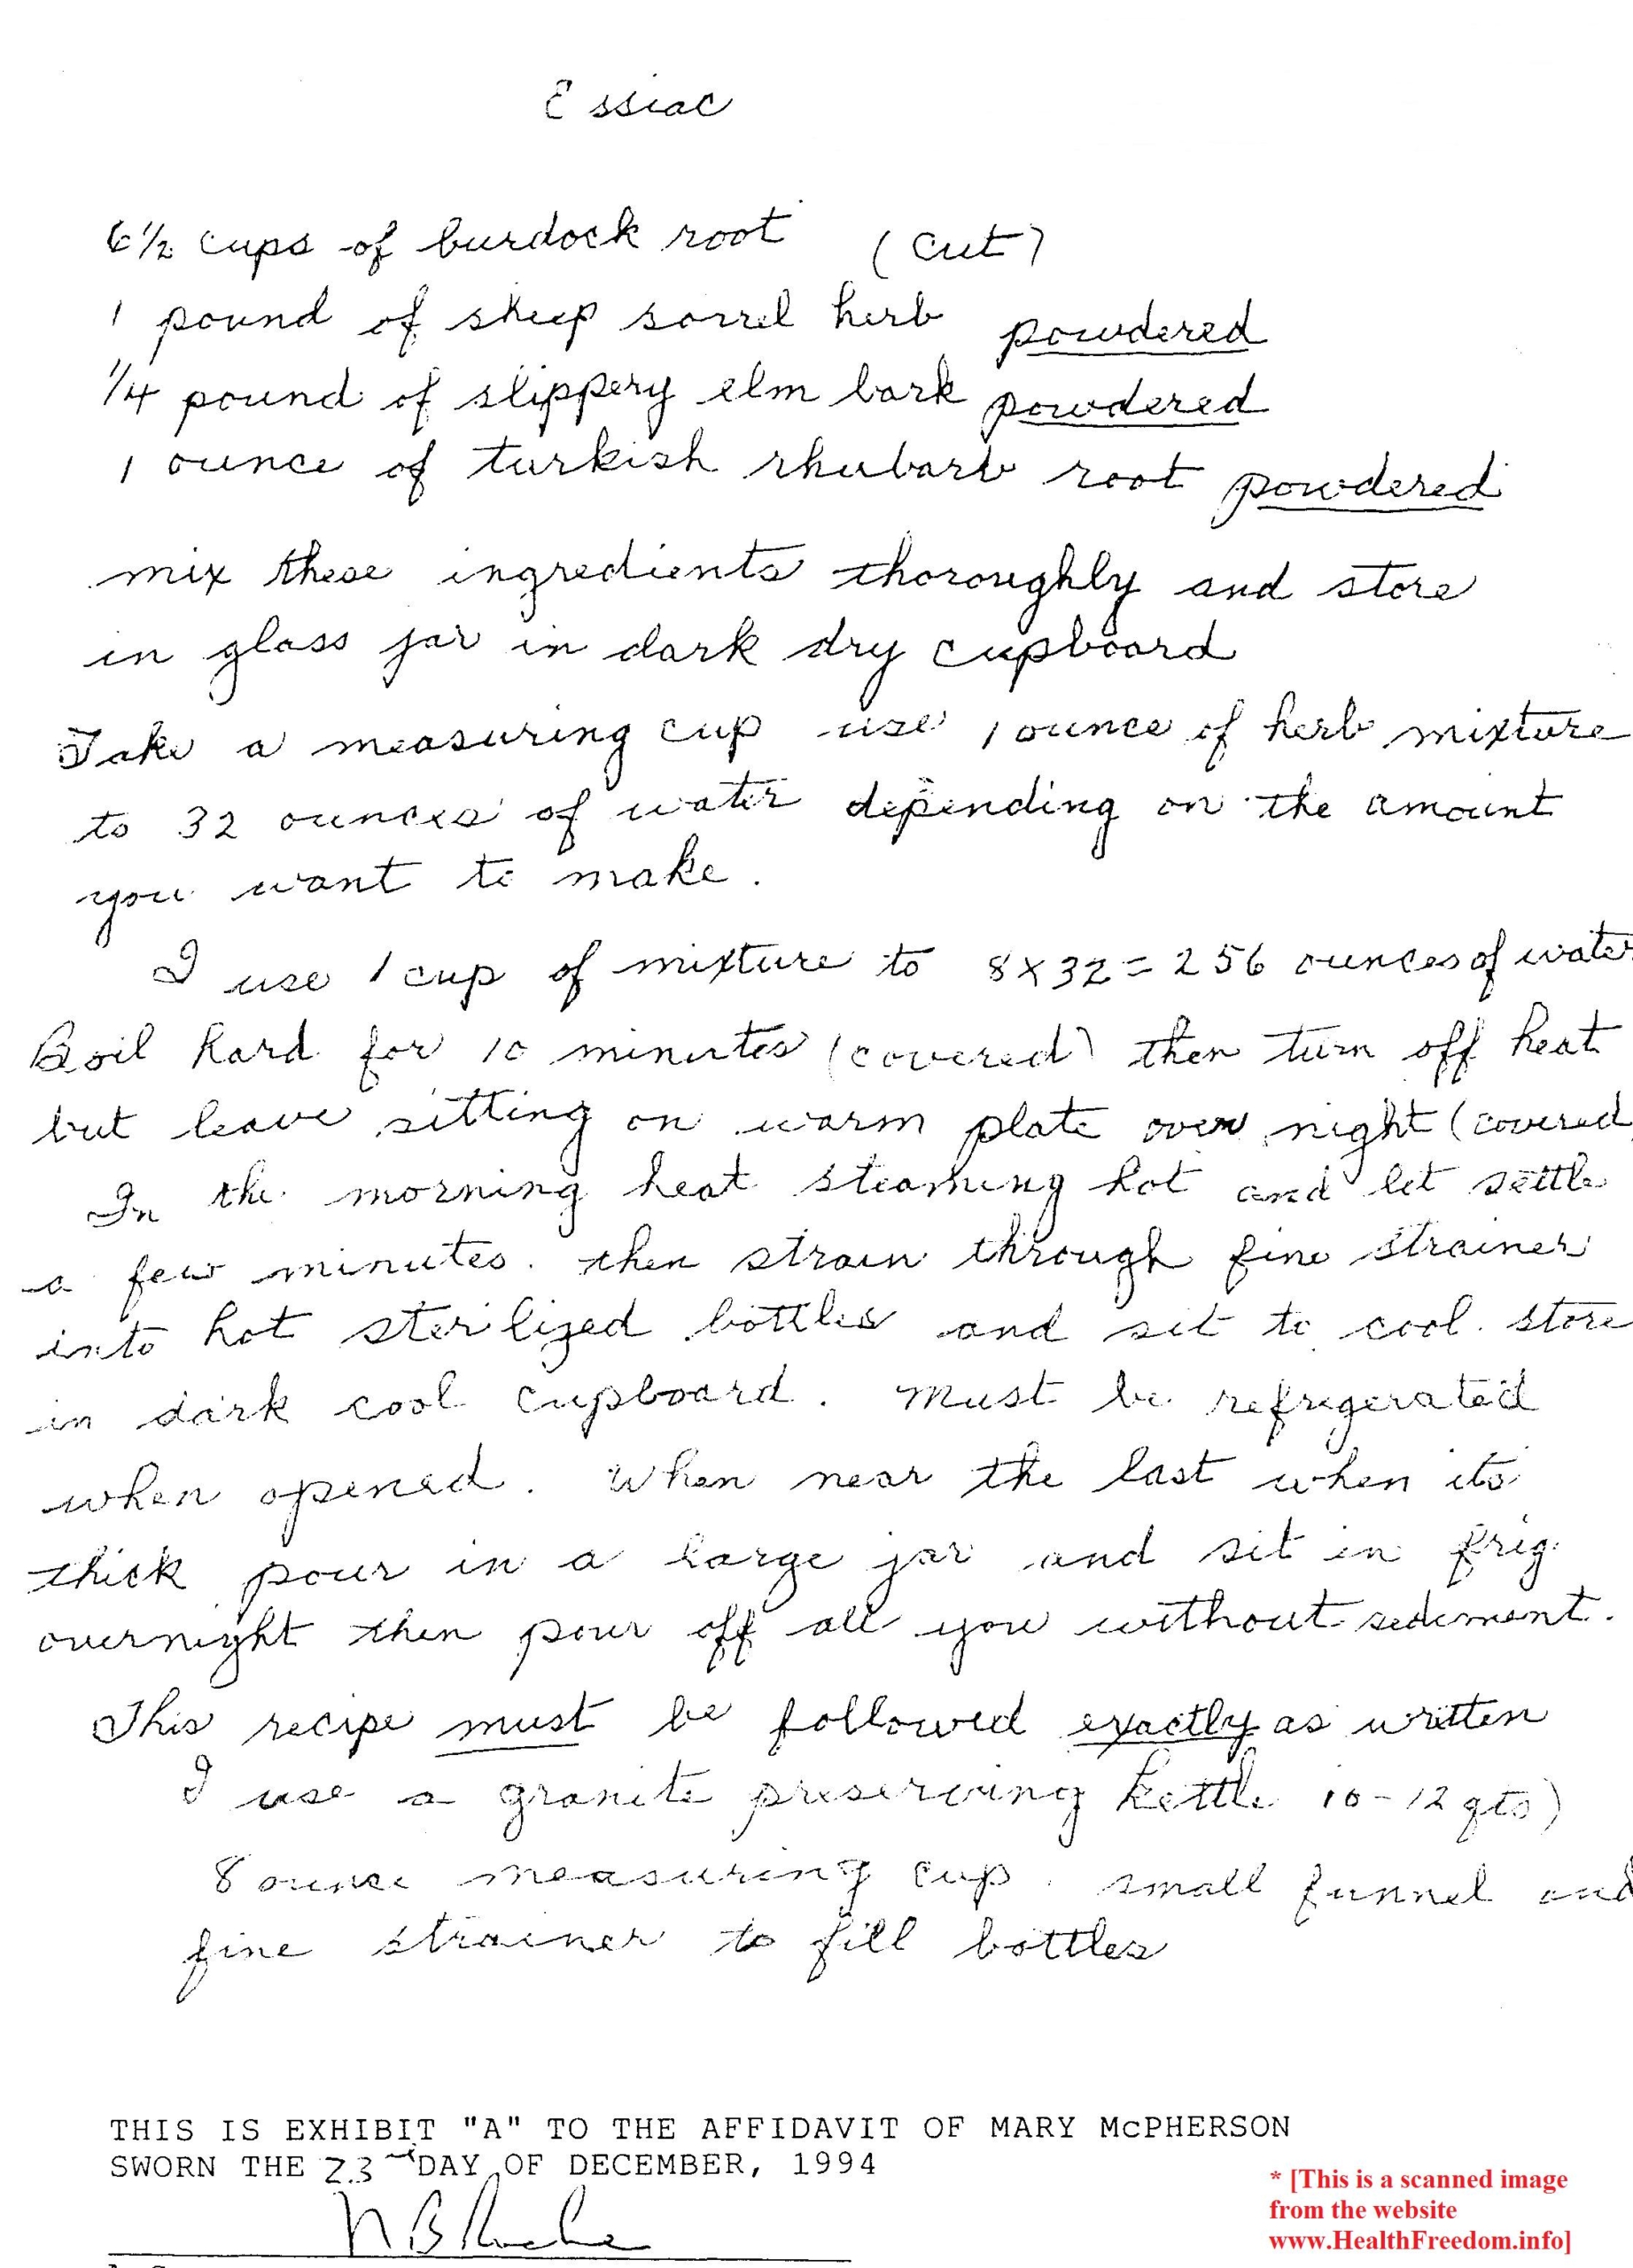 Essiac
6½ cups of burdock root (cut)
1 pound of sheep sorrel herb powdered
1/4 pound of slippery elm bark powdered
1 ounce of turkish rhubarb root powdered
mix these ingredients thoroughly and store
in glass jar in dark dry cupboard
Take a measuring cup use 1 ounce of herb mixture
to 32 ounces of water depending on the amount
you want to make.
I use 1 cup of mixture to 8 x 32 = 256 ounces of water
Boil hard for 10 minutes (covered) then turn off heat
but leave sitting on warm plate over night (covered
In the morning heat steaming hot and let settle
a few minutes. then strain through fine strainer
into hot sterilized bottles and sit to cool. store
in dark cool cupboard. must be refrigerated
when opened. When near the last when its
thick pour in a large jar and sit in frig.
overnight then pour off all you without sediment.
This recipe must be followed exactly as written
I use a granite preserving kettle 10-12 qts)
8 ounce measuring cup. small funnel and
fine strainer to fill bottles
THIS IS EXHIBIT "A" TO THE AFFIDAVIT OF MARY McPHERSON
SWORN THE 23rd DAY OF DECEMBER, 1994
* [This is a scanned image
from the website
www.HealthFreedom.info]